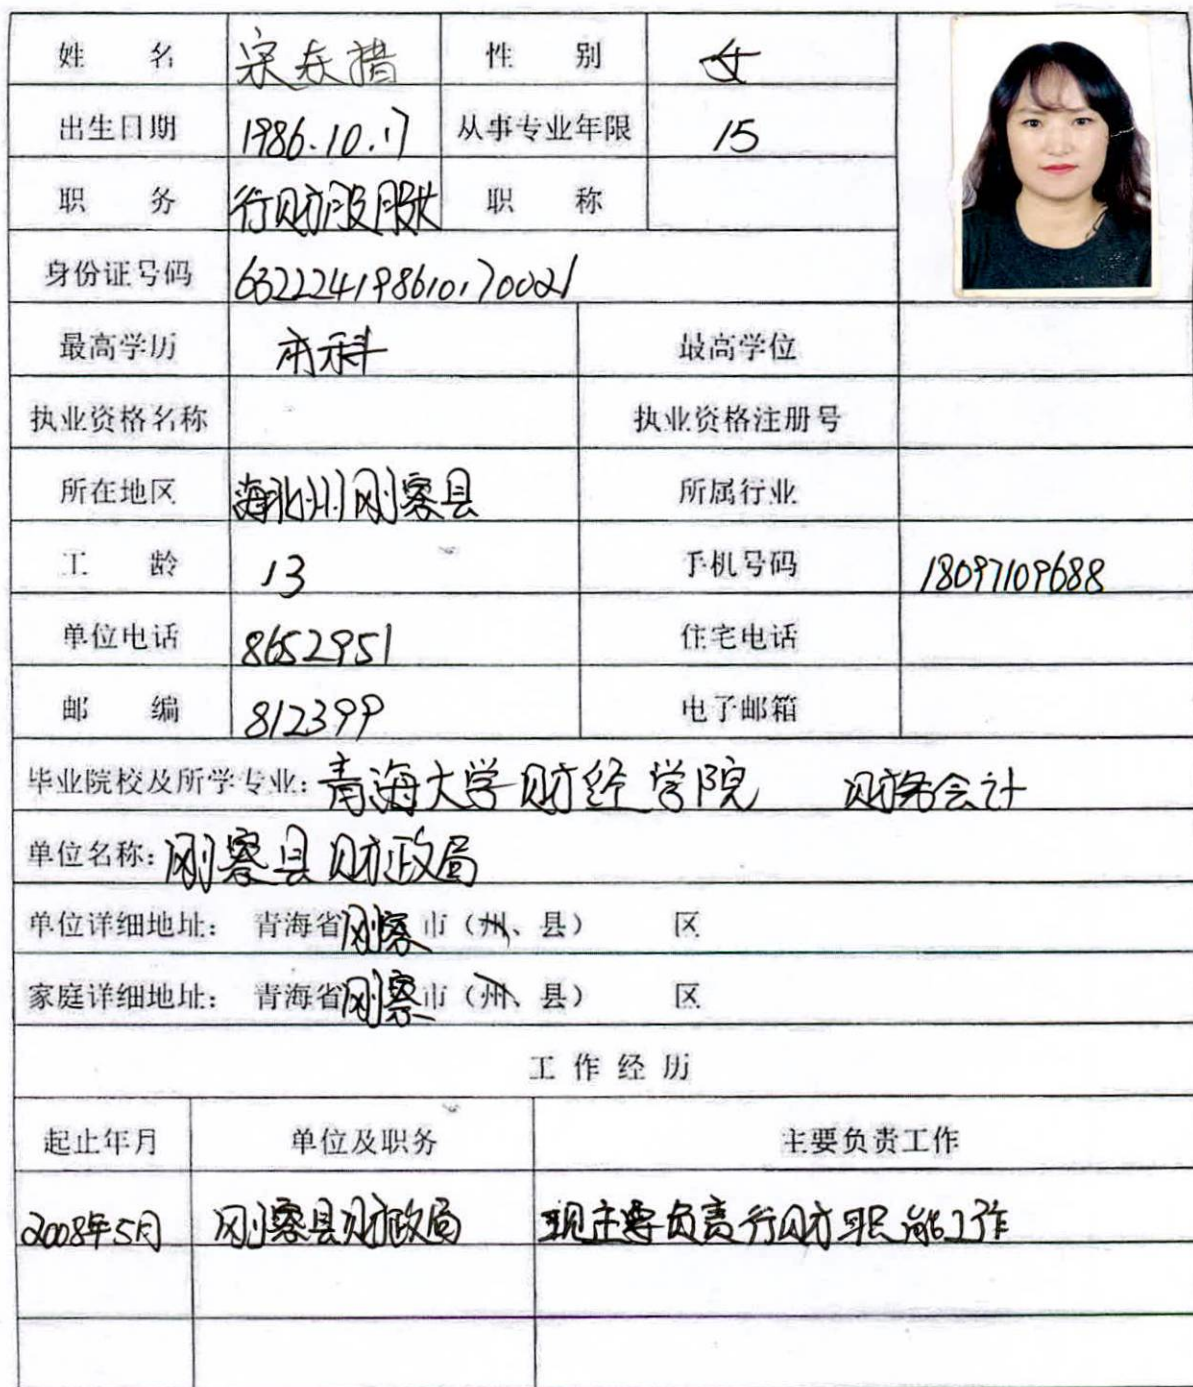 姓 名 宋春措 性 别 女
出生日期 1986.10.17 从事专业年限 15
职 务 行财股股长 职 称
身份证号码 632224198610170021
最高学历 本科 最高学位
执业资格名称 执业资格注册号
所在地区 海北州刚察县 所属行业
工 龄 13 手机号码 18097109688
单位电话 8652951 住宅电话
邮 编 812399 电子邮箱
毕业院校及所学专业: 青海大学财经学院 财务会计
单位名称: 刚察县财政局
单位详细地址: 青海省刚察市(州、县) 区
家庭详细地址: 青海省刚察市(州、县) 区
工作经历
起止年月 单位及职务 主要负责工作
2008年5月 刚察县财政局 现主要负责行财职能工作